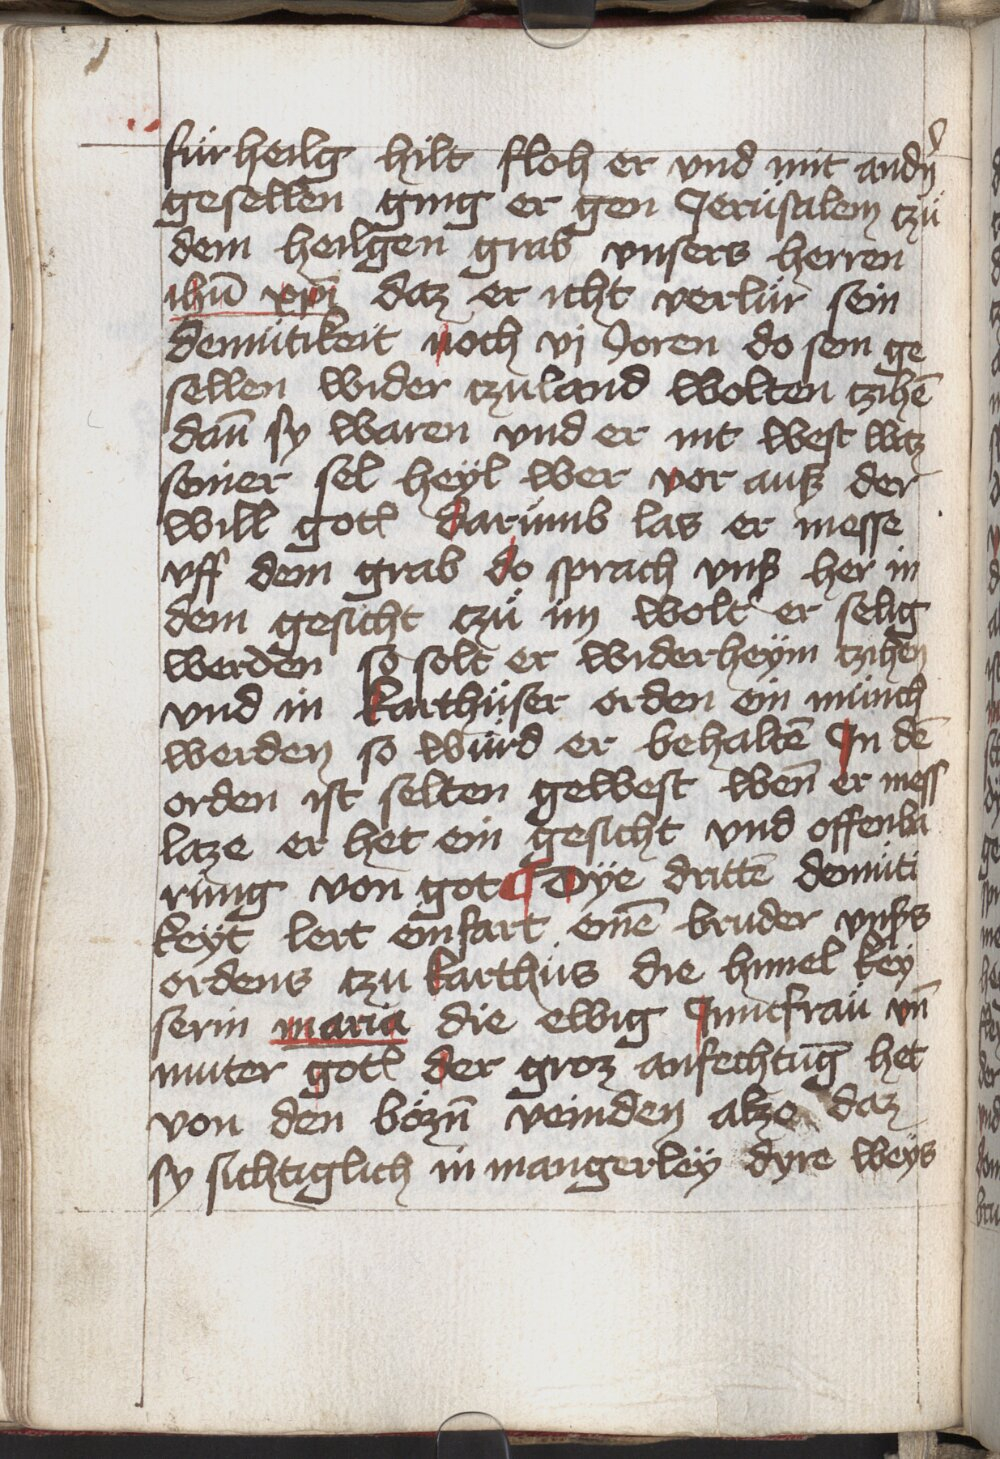 für heilg hilt floh er vnd mit andn̄
gesellen ging er gen Jerüsalem tzü
dem heilgen grab vnsers herren
ihū xpi daz er icht verlür sein
demütikeit noch vj Joren do sein ge
sellen wider tzu land wolten tzihē
dan̄ sy waren vnd er nit west waz
seiner sel heyl wer vor auß der
will gotẜ darümb las er messe
vff dem grab do sprach vnß her in
dem gesicht tzü im wolt er selig
werden so solt er widerheÿm tzihen
vnd in karthüser orden ein münch
werden so würd er behaltē In dē
orden ist selten gewest wen̄ er mess
laze er het ein gesicht vnd offenba
rüng von got ¶ Dÿe drittē demüti
keÿt lert einfart einē bruder vnßs
ordens tzu karthüs die himel keÿ
serin maria die ewig Junckfraü vn̄
muter gotẜ der groz anfechtūg het
von den bözn̄ veinden alzo daz
sy sichtiglich in mangerleÿ dyre weÿs